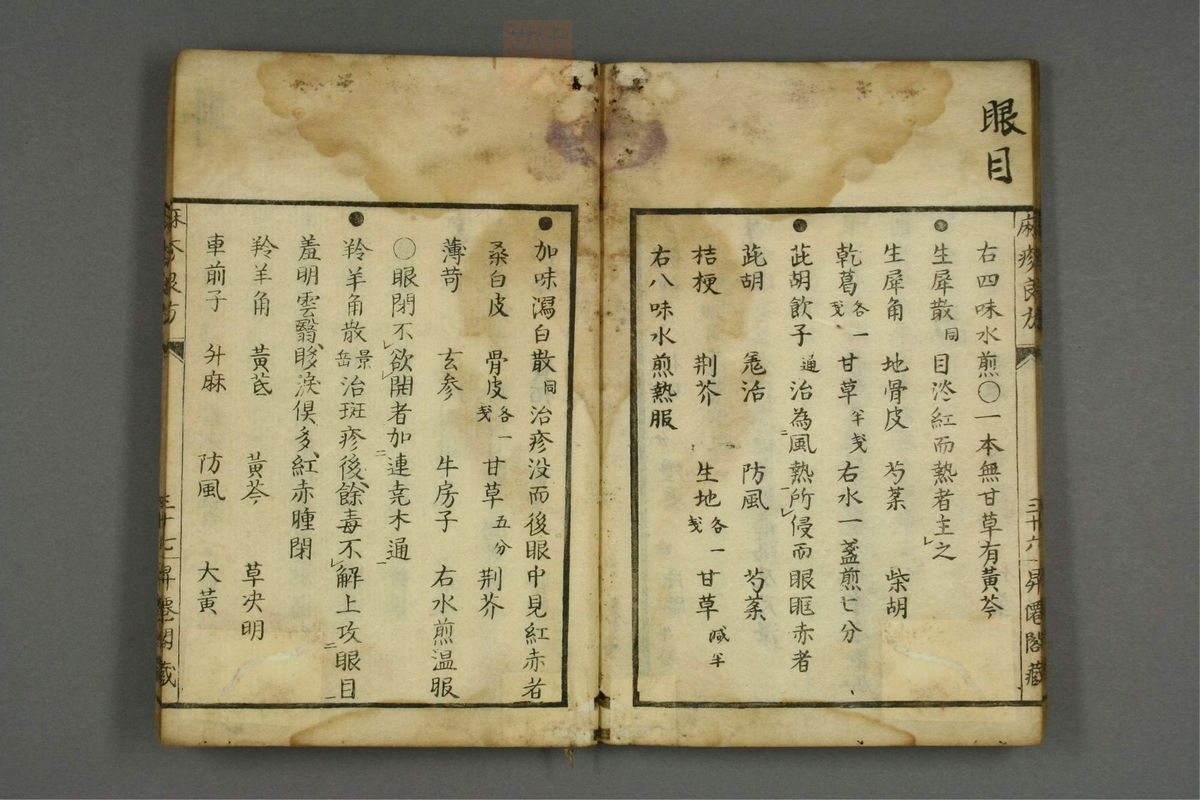 眼目
麻疹良方
三十六
昇遷閣藏
右四味水煎〇一本無甘草有黃芩
●生犀散同目涩紅而熱者主之
生犀角 地骨皮 芍薬 柴胡
乾葛各一戔 甘草半戔 右水一盞煎七分
●茈胡飲子通治為風熱所侵而眼眶赤者
茈胡 羗活 防風 芍薬
桔梗 荆芥 生地各一戔 甘草减半
右八味水煎熱服
●加味瀉白散同治疹没而後眼中見紅赤者
桑白皮 骨皮各一戔 甘草五分 荆芥
薄苛 玄参 牛房子 右水煎温服
〇眼閉不欲開者加連壳木通
●羚羊角散景岳治斑疹後餘毒不解上攻眼目
羞明雲翳眵淚俱多紅赤腫閉
羚羊角 黃芪 黃芩 草决明
車前子 升麻 防風 大黃
三十七
昇遷閣藏